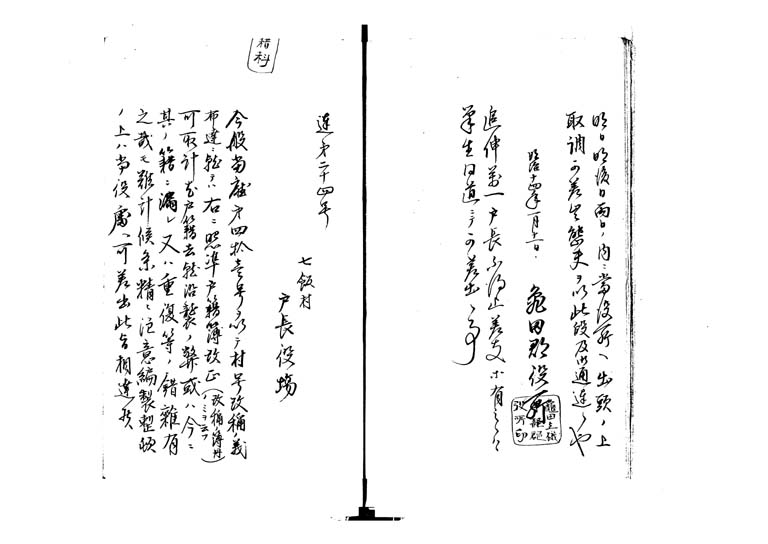 明日明後日両日ノ内ニ当役所ヘ出頭ノ上
取調可差出態夫ヲ以此段及御通達候也
明治十四年一月十二日
亀田郡役所
追伸万一戸長不得止差支等有之候ハヽ
筆生同道ニテ可差出事
連第二十四号
七飯村
戸長役場
今般当庁第四拾壱号ヲ以テ村号改称ノ義
布達ニ就テハ右ニ照準戸籍簿改正
可取計戸籍去就沿襲ノ弊或ハ今ニ
其ノ籍ニ漏レ又ハ重復等ノ錯雑有
之哉モ難計候条精々注意編製整頓
ノ上ハ当役処ヘ可差出此旨相達候